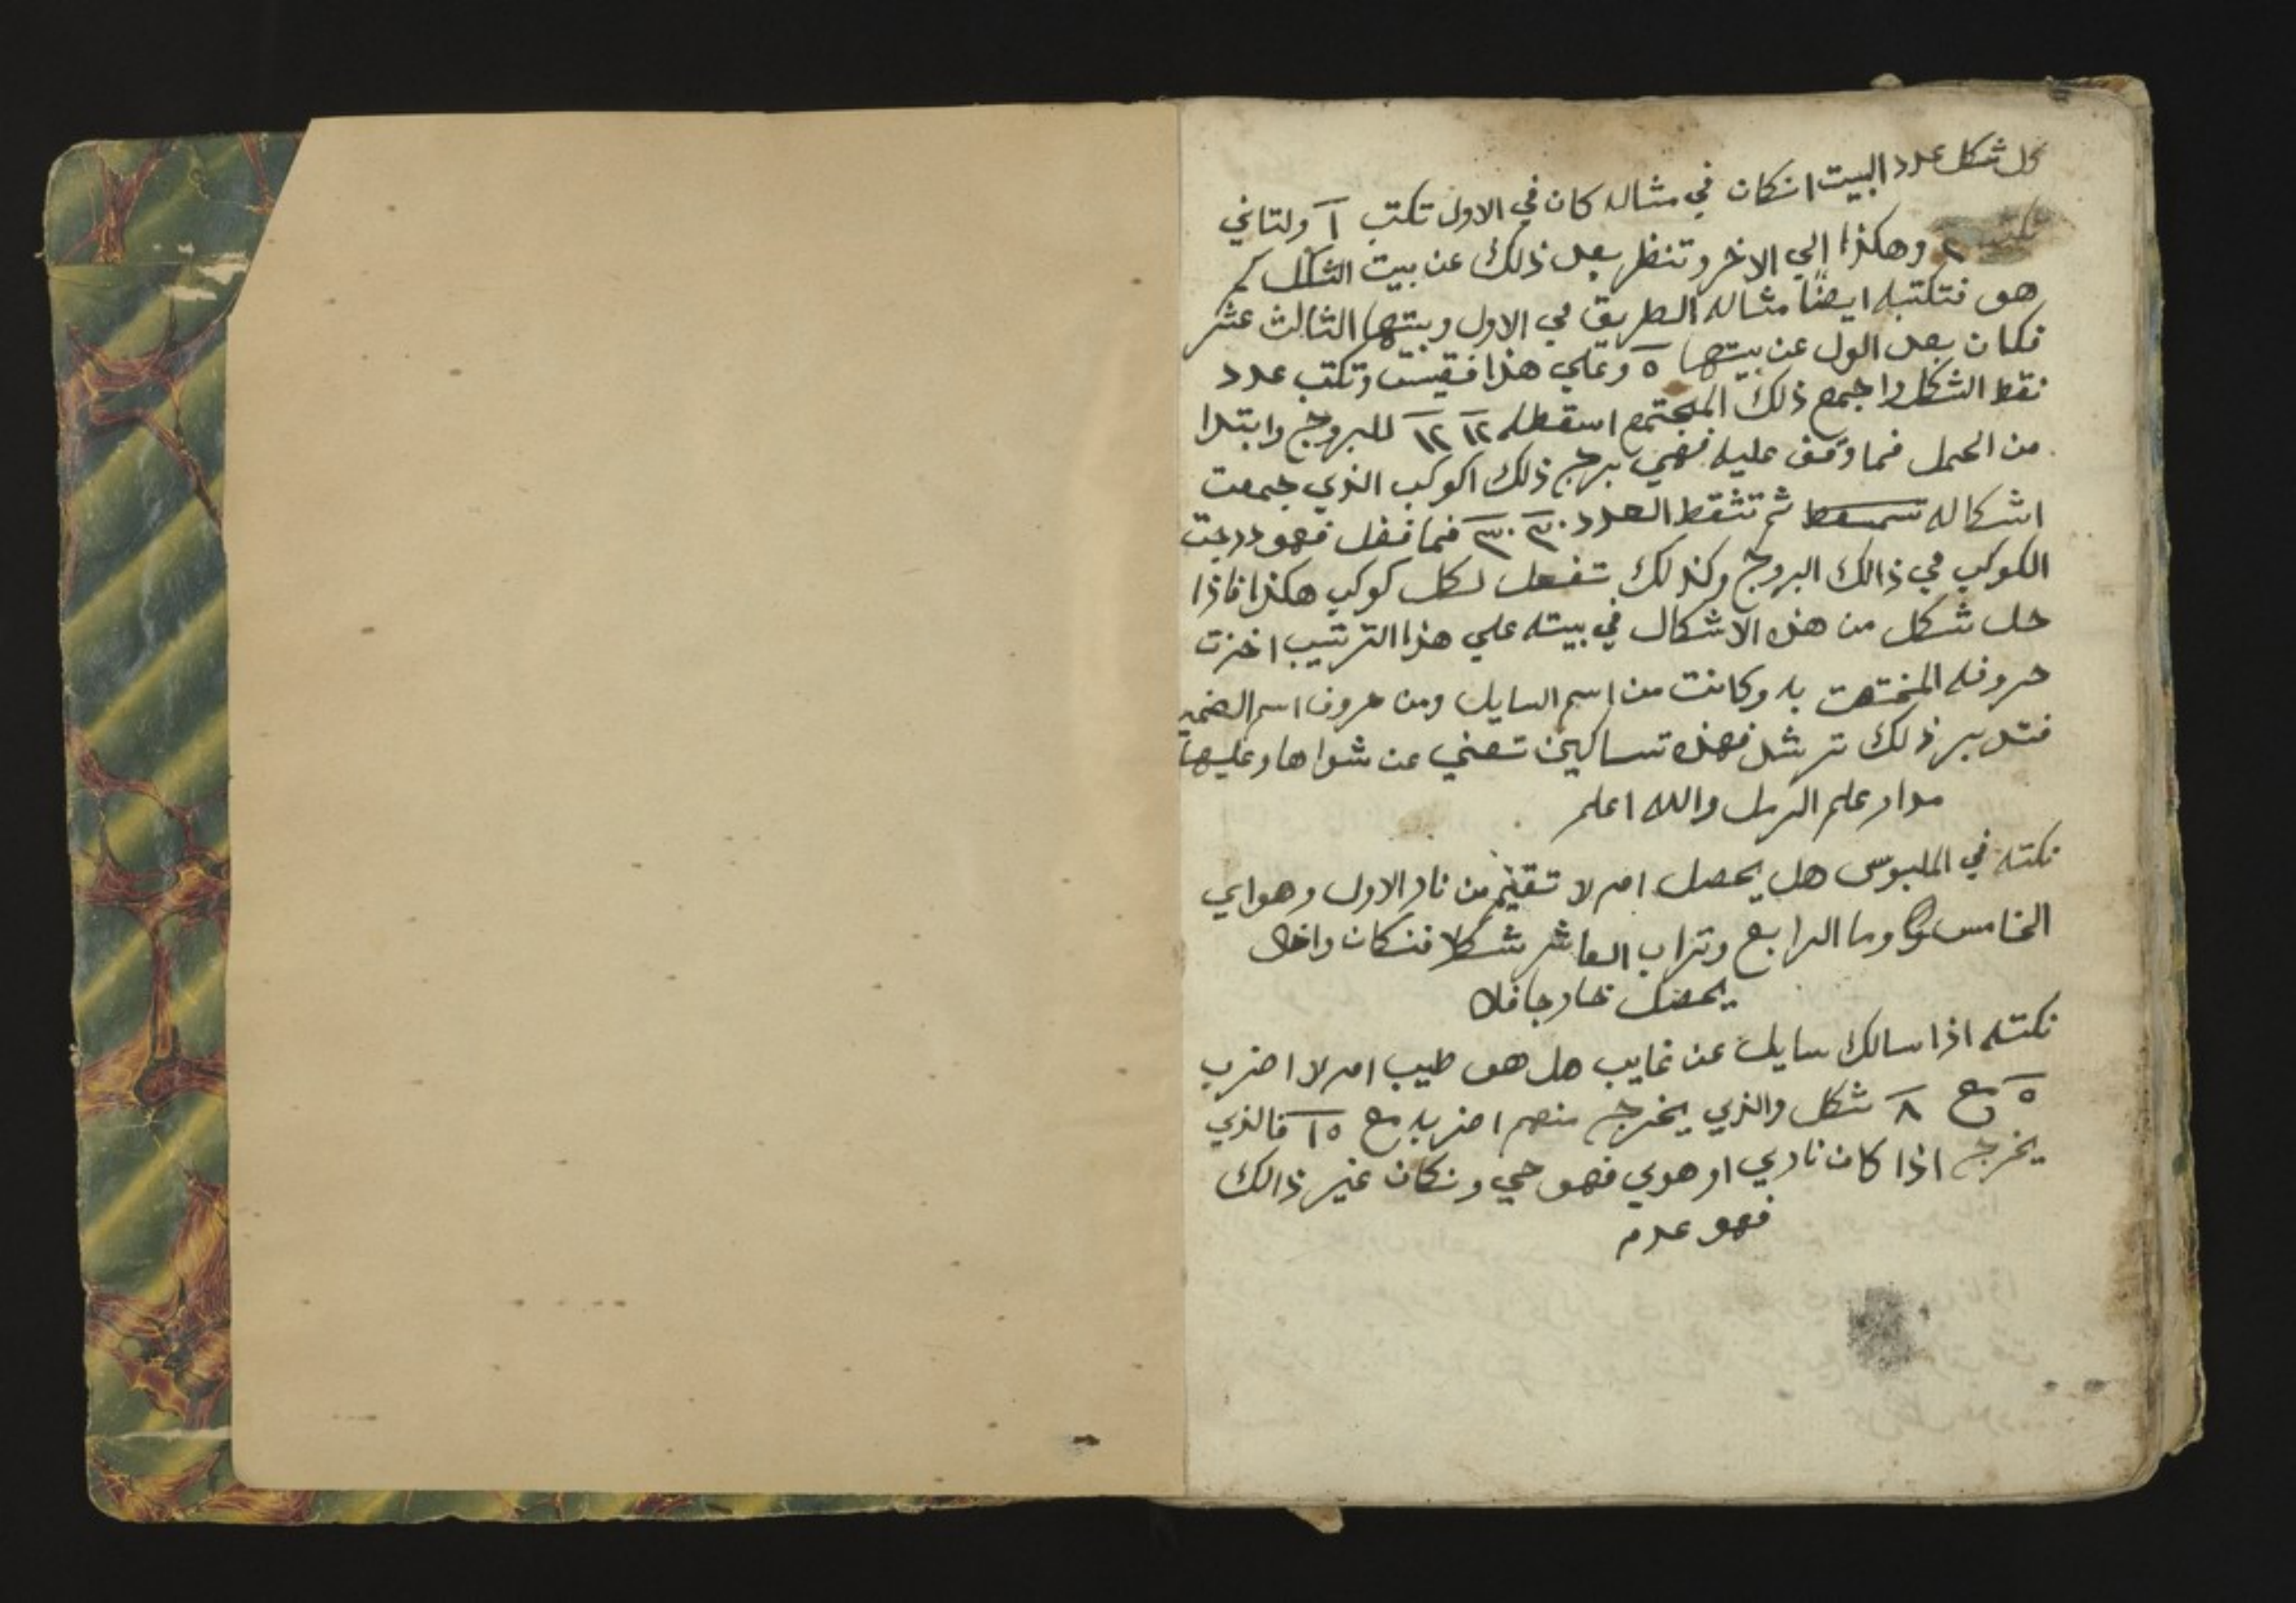 كل شكل عدد البيت انكان في مثاله كان في الاول تكتب ١ ولتاني
تكتب ٢ وهكذا إلي الاخر وتنظر بعد ذلك عن بيت الشكل كم
هو فتكتبه ايضاً مثاله الطريق في الاول وبيتها الثالث عشر
فكان بعد الول عن بيتها ٥ وعلي هذا فقيس وتكتب عدد
نقط الشكل واجمع ذلك المجتمع اسقطه ١٢ ١٢ للبروج وابتدا
من الحمل فما وقف عليه فهي برج ذلك اكوكب الذي جمعت
اشكاله ثم تثقط العدد ٣٠ ٣٠ فما فضل فهو درجت
الكوكب في ذالك البروج وكذلك تفعل لكل كوكب هكذا فاذا
حل شكل من هذه الاشكال في بيته علي هذا الترتيب اخذت
حروفه المختصت به وكانت من اسم السايل ومن حروف اسم الضمير
فتدبر ذلك ترشد فهذه تساكين تغني عن شواها وعليها
مدار علم الرمل والله اعلم
نكته في الملبوس هل يحصل ام لا تقيم من نار الاول وهواي
الخامس وما الرابع وتراب العاشر شكلا فنكان داخل
يحصل خارجا فلا
نكته اذا سالك سايل عن غايب هل هو طيب ام لا اضرب
٥ مع ٨ شكل والذي يخرج منهم اضربه مع ١٥ فالذي
يخرج اذا كان ناري او هوي فهو حي ونكان غير ذالك
فهو عدم